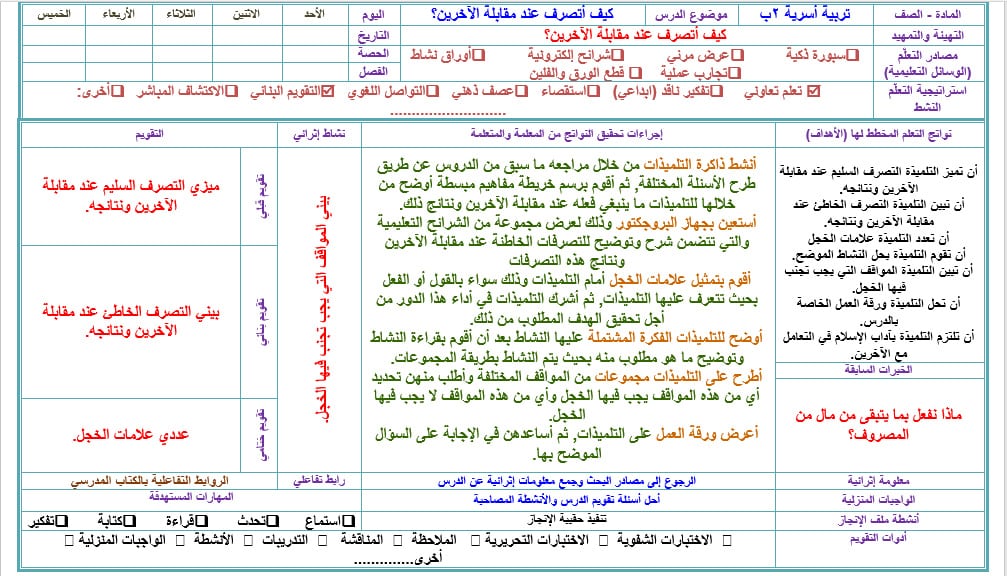 المادة - الصف تربية أسرية ٢ب موضوع الدرس كيف أتصرف عند مقابلة الآخرين؟ اليوم الأحد الاثنين الثلاثاء الأربعاء الخميس
التهيئة والتمهيد كيف أتصرف عند مقابلة الآخرين؟ التاريخ
مصادر التعلّم (الوسائل التعليمية) ❑سبورة ذكية ❑عرض مرئي ❑شرائح إلكترونية ❑أوراق نشاط الحصة
❑تجارب عملية ❑ قطع الورق والفلين الفصل
استراتيجية التعلّم النشط ☑ تعلم تعاوني ❑تفكير ناقد (ابداعي) ❑استقصاء ❑عصف ذهني ❑التواصل اللغوي ☑التقويم البنائي ❑الاكتشاف المباشر ❑أخرى:
............................
نواتج التعلم المخطط لها (الأهداف) إجراءات تحقيق النواتج من المعلمة والمتعلمة نشاط إثرائي التقويم
أن تميز التلميذة التصرف السليم عند مقابلة
الآخرين ونتائجه.
أن تبين التلميذة التصرف الخاطئ عند
مقابلة الآخرين ونتائجه.
أن تعدد التلميذة علامات الخجل
أن تقوم التلميذة بحل النشاط الموضح.
أن تبين التلميذة المواقف التي يجب تجنب
فيها الخجل.
أن تحل التلميذة ورقة العمل الخاصة
بالدرس.
أن تلتزم التلميذة بآداب الإسلام في التعامل
مع الآخرين.
الخبرات السابقة
ماذا نفعل بما يتبقى من مال من
المصروف؟
أنشط ذاكرة التلميذات من خلال مراجعه ما سبق من الدروس عن طريق
طرح الأسئلة المختلفة, ثم أقوم برسم خريطة مفاهيم مبسطة أوضح من
خلالها للتلميذات ما ينبغي فعله عند مقابلة الآخرين ونتائج ذلك.
أستعين بجهاز البروجكتور وذلك لعرض مجموعة من الشرائح التعليمية
والتي تتضمن شرح وتوضيح للتصرفات الخاطئة عند مقابلة الآخرين
ونتائج هذه التصرفات
أقوم بتمثيل علامات الخجل أمام التلميذات وذلك سواء بالقول أو الفعل
بحيث تتعرف عليها التلميذات, ثم أشرك التلميذات في أداء هذا الدور من
أجل تحقيق الهدف المطلوب من ذلك.
أوضح للتلميذات الفكرة المشتملة عليها النشاط بعد أن أقوم بقراءة النشاط
وتوضيح ما هو مطلوب منه بحيث يتم النشاط بطريقة المجموعات.
أطرح على التلميذات مجموعات من المواقف المختلفة وأطلب منهن تحديد
أي من هذه المواقف يجب فيها الخجل وأي من هذه المواقف لا يجب فيها
الخجل.
أعرض ورقة العمل على التلميذات, ثم أساعدهن في الإجابة على السؤال
الموضح بها.
بيني المواقف التي يجب تجنب فيها الخجل.
تقويم قبلي
ميزي التصرف السليم عند مقابلة
الآخرين ونتائجه.
تقويم بنائي
بيني التصرف الخاطئ عند مقابلة
الآخرين ونتائجه.
تقويم ختامي
عددي علامات الخجل.
معلومة إثرائية الرجوع إلى مصادر البحث وجمع معلومات إثرائية عن الدرس رابط تفاعلي الروابط التفاعلية بالكتاب المدرسي
الواجبات المنزلية أحل أسئلة تقويم الدرس والأنشطة المصاحبة المهارات المستهدفة
أنشطة ملف الإنجاز تنفيذ حقيبة الإنجاز ❑استماع ❑تحدث ❑قراءة ❑كتابة ❑تفكير
أدوات التقويم □ الاختبارات الشفوية □ الاختبارات التحريرية □ الملاحظة □ المناقشة □ التدريبات □ الأنشطة □ الواجبات المنزلية □
أخرى..............